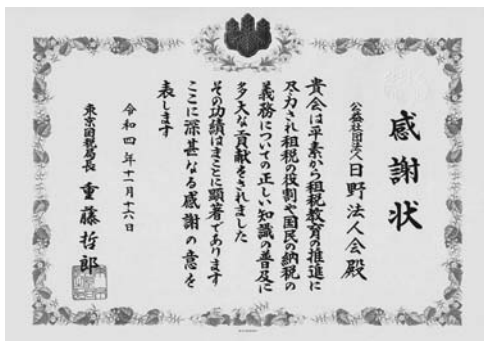 感謝状
公益社団法人日野法人会殿
貴会は平素から租税教育の推進に
尽力され租税の役割や国民の納税の
義務についての正しい知識の普及に
多大な貢献をされました
その功績はまことに顕著であります
ここに深甚なる感謝の意を
表します
令和四年十一月十六日
東京国税局長 重藤哲郎